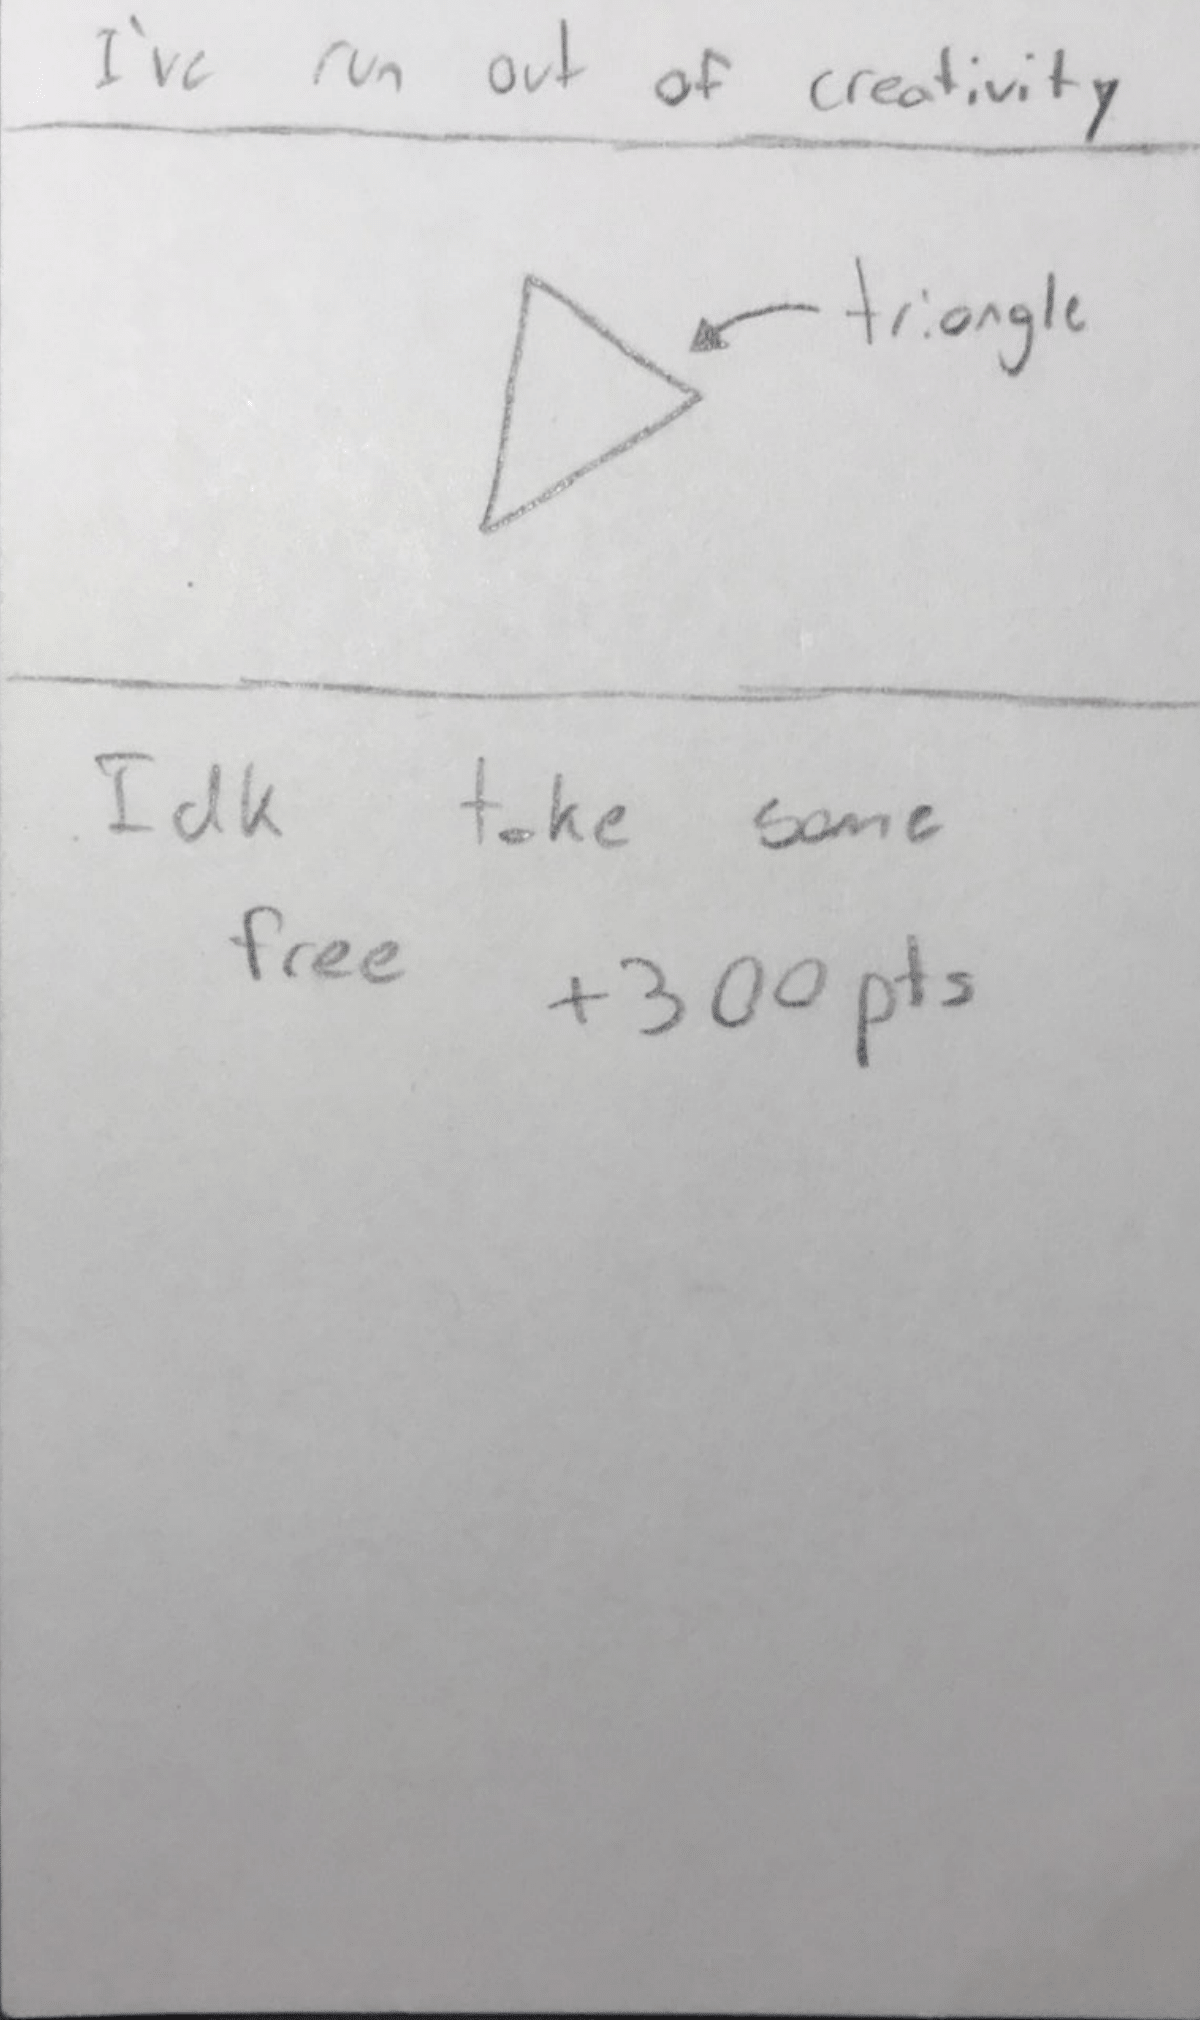 I've run out of creativity
triangle
Idk take some
free +300 pts